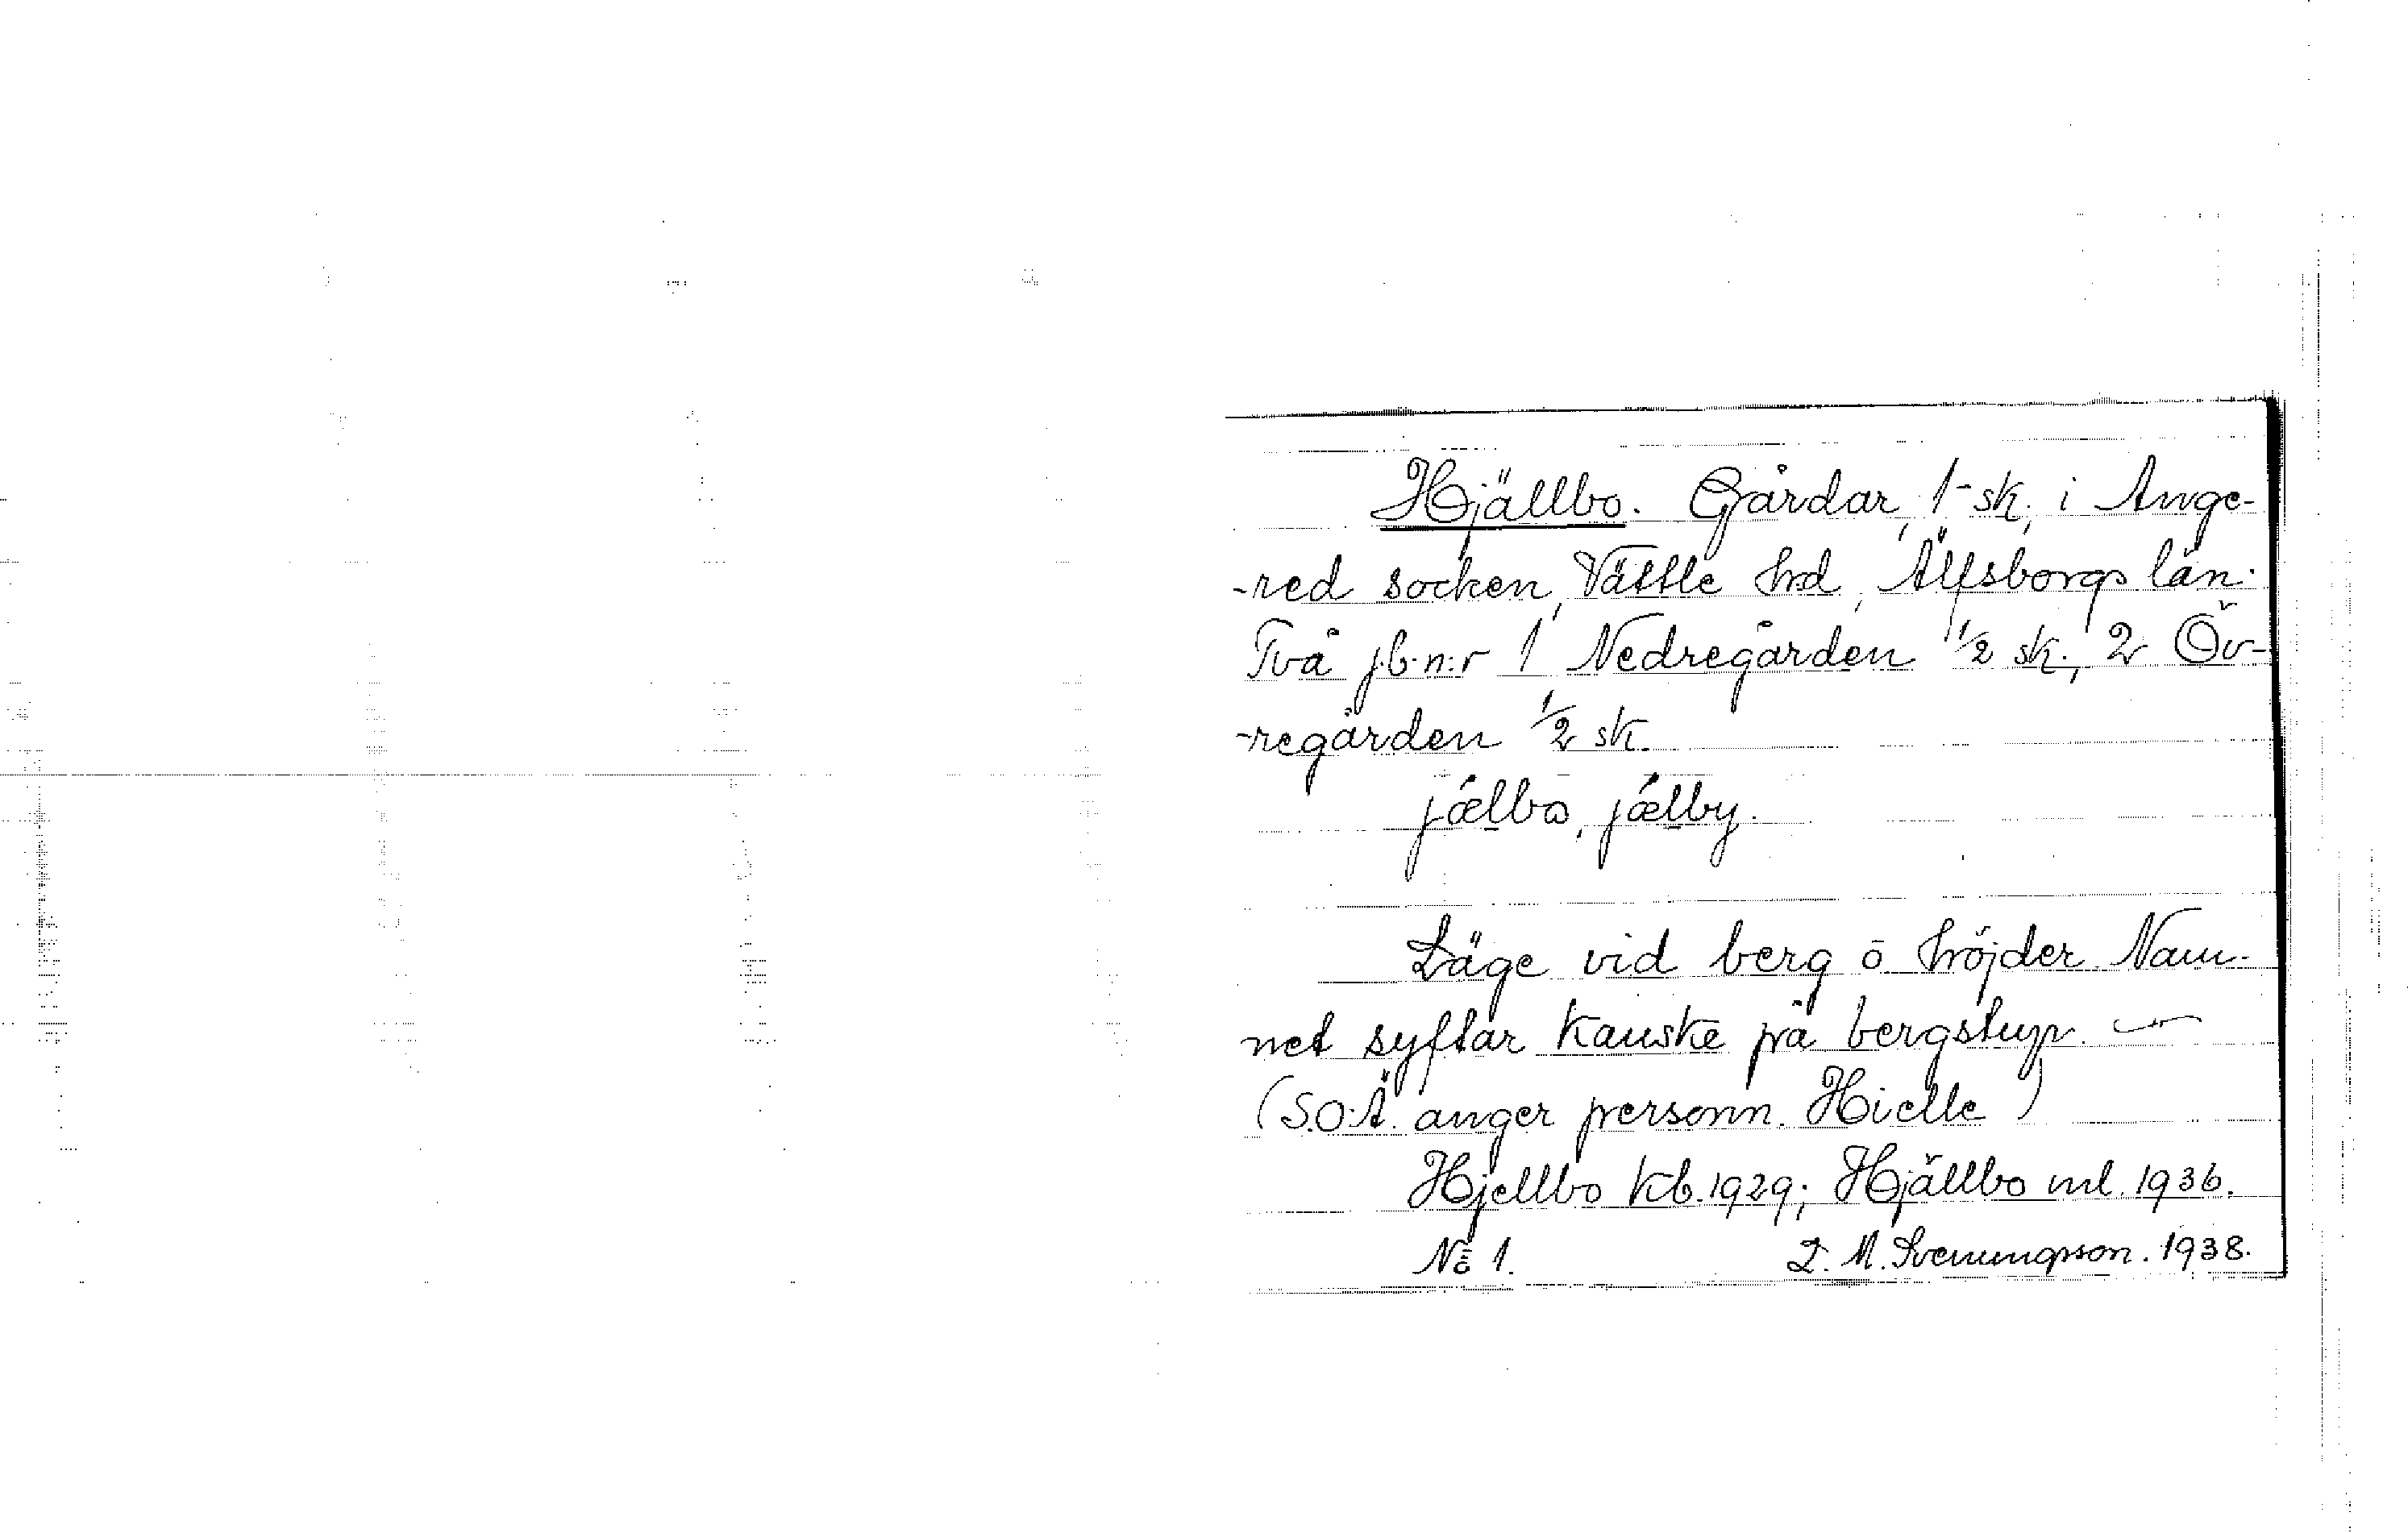 Hjällbo. Gårdar, 1-sk., i Ange-
-red socken, Vättle hrd, Älfsborgs län.
Två jb.n:r 1 Nedregården 1/2 sk., 2 Öv-
-regården 1/2 sk.
jǽlbo, jǽlby.
Läge vid berg o. höjder. Nam-
net syftar kanske på bergstup. —
(S.O.Ä. anger personn. Hielle)
Hjellbo kb. 1929; Hjällbo ml. 1936.
No 1. L. M. Svenungsson. 1938.